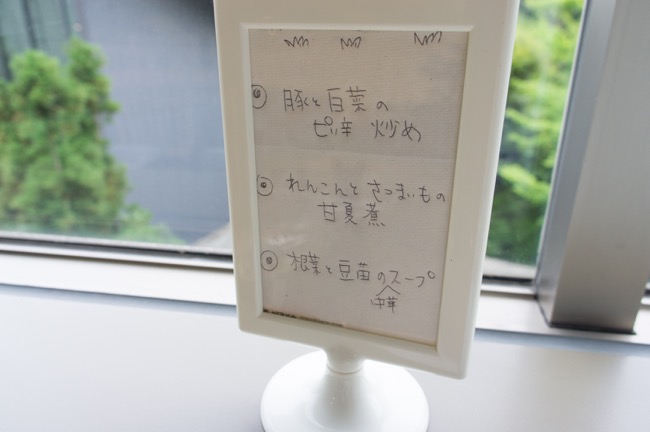 豚と白菜の
ピリ辛 炒め
れんこんと さつまいもの
甘夏煮
根菜と豆苗の中華スープ